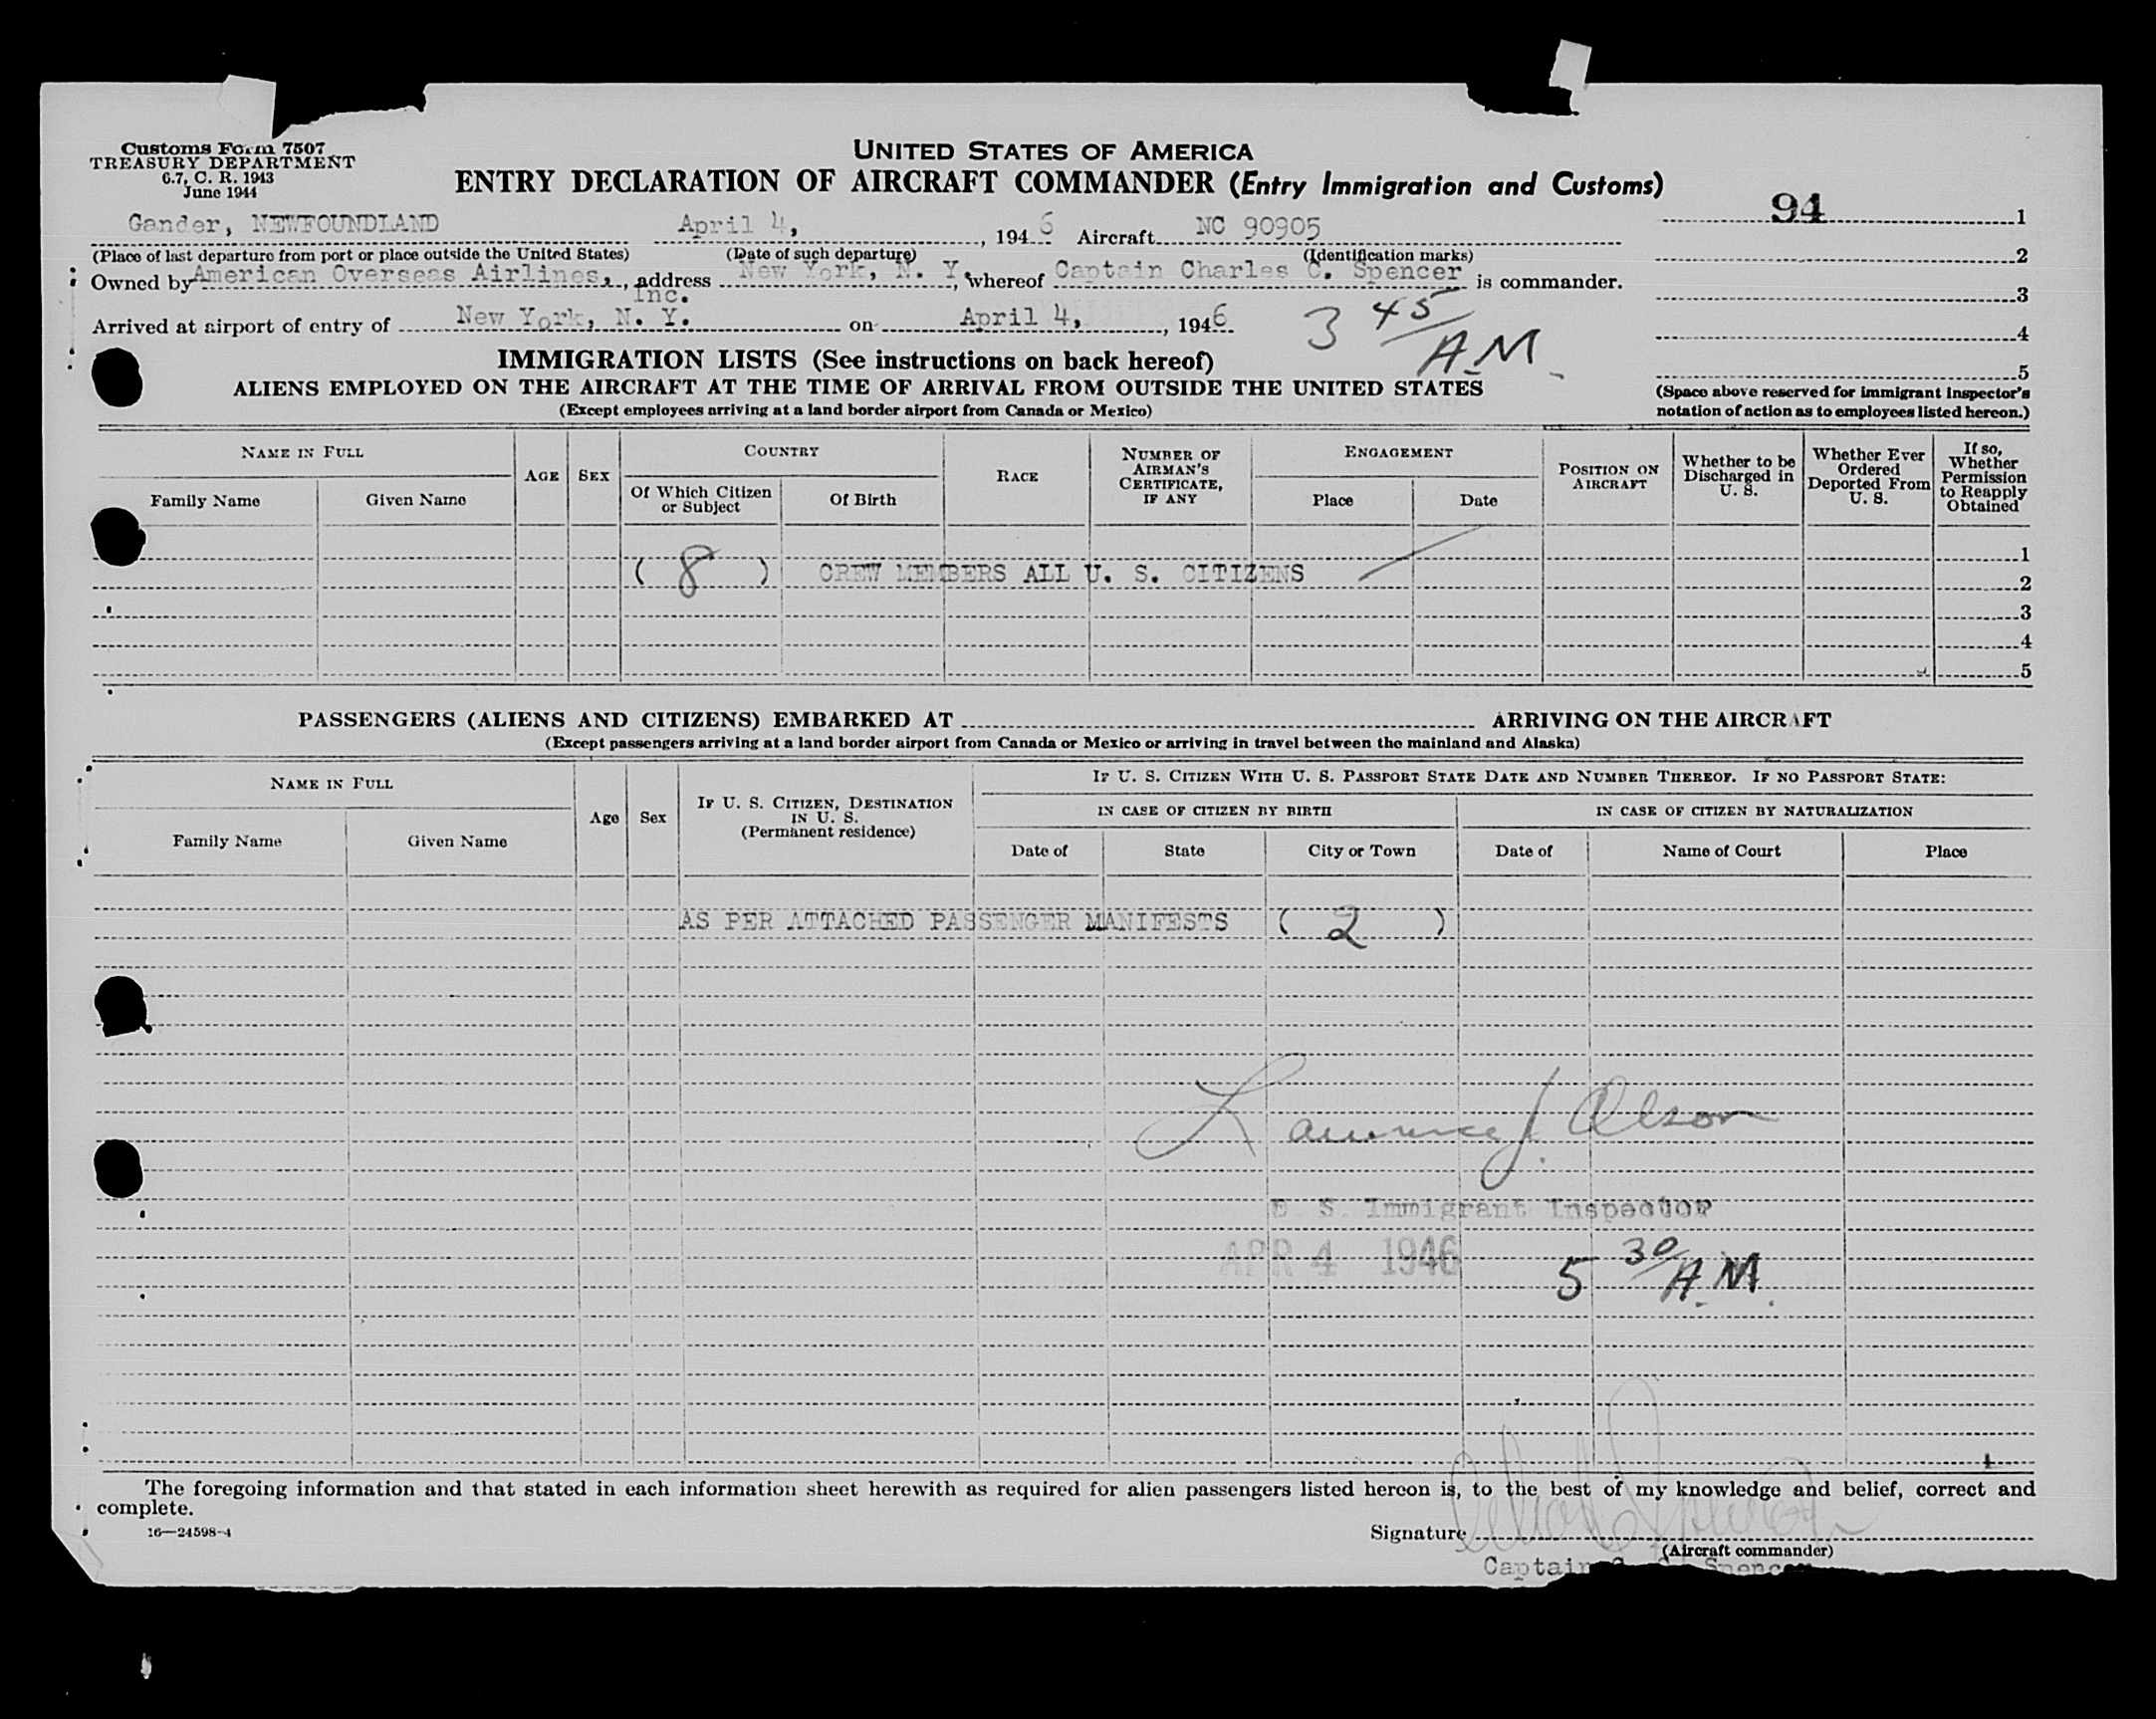 Customs Form 7507
TREASURY DEPARTMENT
6.7, C. R. 1943
June 1944
UNITED STATES OF AMERICA
ENTRY DECLARATION OF AIRCRAFT COMMANDER (Entry Immigration and Customs)
94 1
Gander, NEWFOUNDLAND April 4, , 1946 Aircraft NC 90905
(Place of last departure from port or place outside the United States) (Date of such departure) (Identification marks)
2
Owned by American Overseas Airlines, Inc. , address New York, N. Y. , whereof Captain Charles C. Spencer is commander.
3
Arrived at airport of entry of New York, N. Y. on April 4, , 1946 3 45/A.M.
4
5
IMMIGRATION LISTS (See instructions on back hereof)
ALIENS EMPLOYED ON THE AIRCRAFT AT THE TIME OF ARRIVAL FROM OUTSIDE THE UNITED STATES
(Except employees arriving at a land border airport from Canada or Mexico)
(Space above reserved for immigrant inspector's
notation of action as to employees listed hereon.)
NAME IN FULL
Family Name Given Name
AGE
SEX
COUNTRY
Of Which Citizen or Subject
Of Birth
RACE
NUMBER OF AIRMAN'S CERTIFICATE, IF ANY
ENGAGEMENT
Place Date
POSITION ON AIRCRAFT
Whether to be Discharged in U. S.
Whether Ever Ordered Deported From U. S.
If so, Whether Permission to Reapply Obtained
1
( 8 ) CREW MEMBERS ALL U. S. CITIZENS
2
3
4
5
PASSENGERS (ALIENS AND CITIZENS) EMBARKED AT ARRIVING ON THE AIRCRAFT
(Except passengers arriving at a land border airport from Canada or Mexico or arriving in travel between the mainland and Alaska)
NAME IN FULL
Family Name Given Name
Age
Sex
IF U. S. CITIZEN, DESTINATION IN U. S.
(Permanent residence)
IF U. S. CITIZEN WITH U. S. PASSPORT STATE DATE AND NUMBER THEREOF. IF NO PASSPORT STATE:
IN CASE OF CITIZEN BY BIRTH
Date of State City or Town
IN CASE OF CITIZEN BY NATURALIZATION
Date of Name of Court Place
AS PER ATTACHED PASSENGER MANIFESTS ( 2 )
Lawrence J. Olson
U S. Immigrant Inspector
APR 4 1946 5 30/A.M.
The foregoing information and that stated in each information sheet herewith as required for alien passengers listed hereon is, to the best of my knowledge and belief, correct and
complete.
16—24598-4
Signature
(Aircraft commander)
Captain Spencer